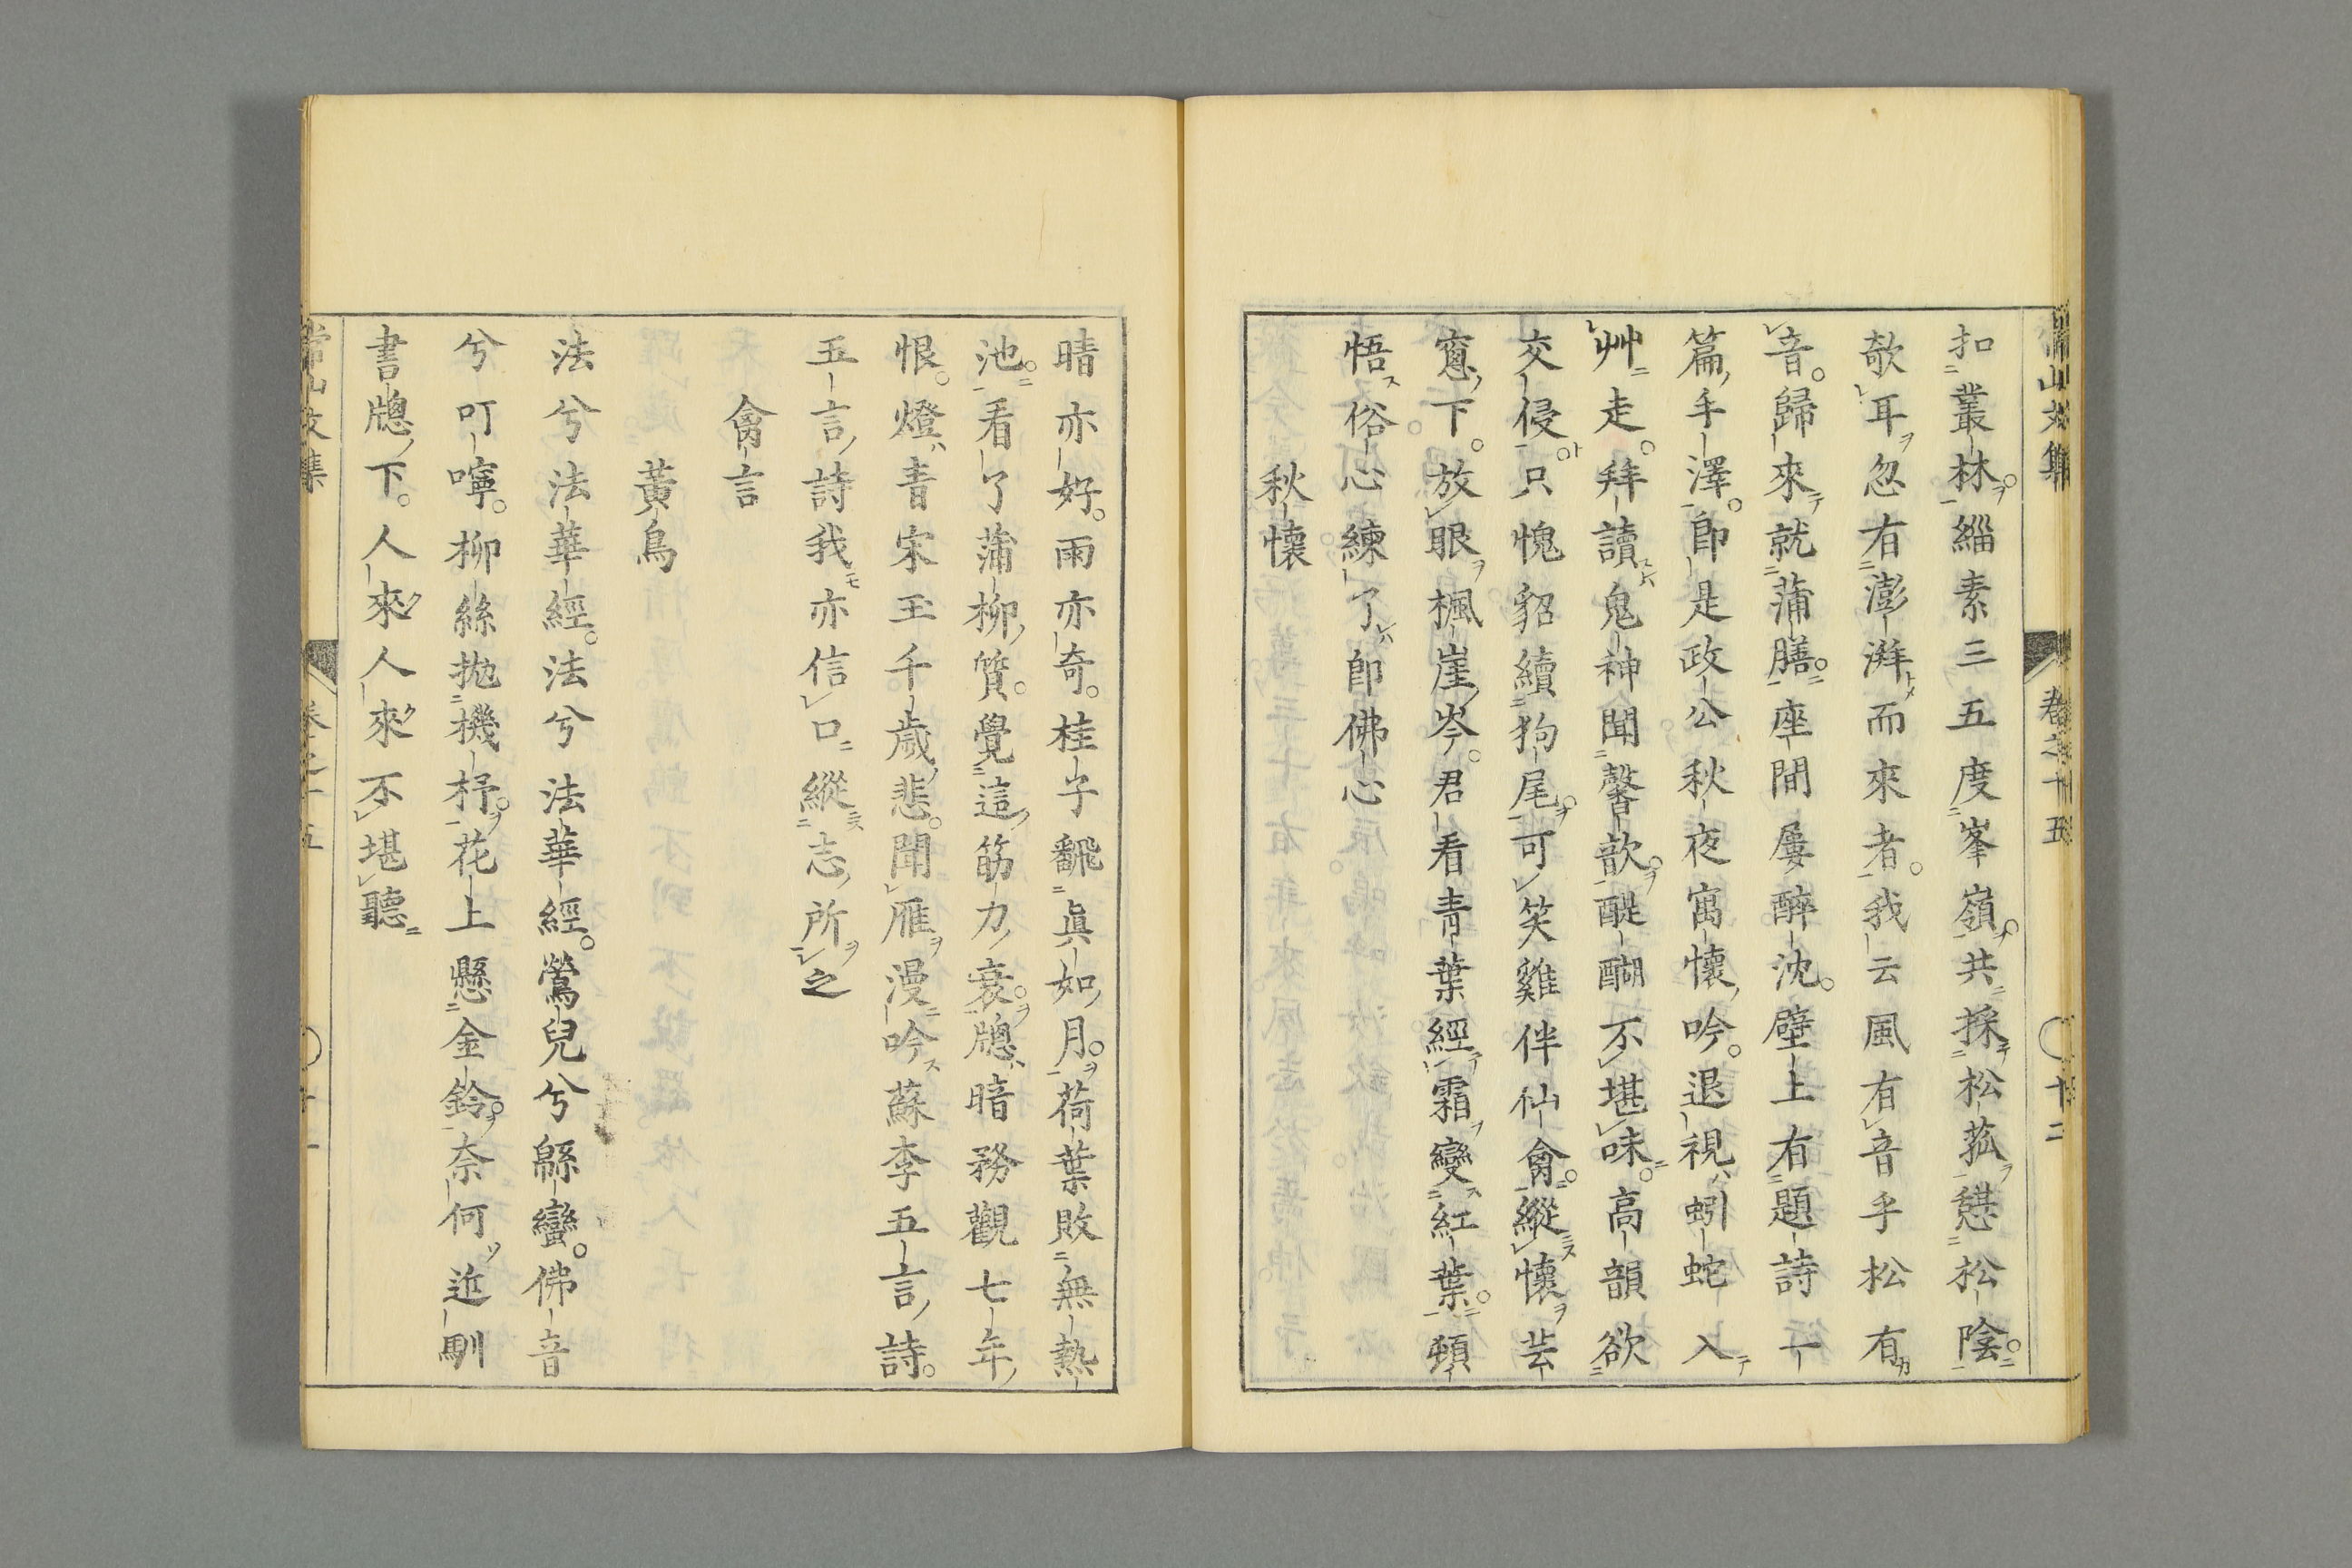 常山文集 卷之十五 十二
扣叢林緇素三五度峯嶺共採松菰憇松陰
欹耳忽有澎湃而來者我云風有音乎松有
音歸來就蒲膳座間屢醉沈壁上有題詩一
篇手澤即是政公秋夜寓懷吟退視蚓蛇入
艸走拜讀鬼神聞馨歆醍醐不堪味高韻欲
交侵只愧貂續狗尾可笑雞伴仙禽縱懷芸
窻下放眼楓崖岑君看青葉經霜變紅葉頓
悟俗心練了卽佛心
秋懷
晴亦好雨亦奇桂子飜眞如月荷葉敗無熱
池看了蒲柳質覺這筋力衰牕暗務觀七年
恨燈青宋玉千歲悲聞雁漫吟蘇李五言詩
五言詩我亦信口縱志所之
禽言
黃鳥
法兮法華經法兮法華經鶯兒兮緜蠻佛音
兮叮嚀柳絲拋機杼花上懸金鈴奈何近馴
書牕下人來人來不堪聽
常山文集 卷之十五